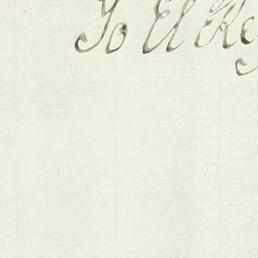 Yo El Rey